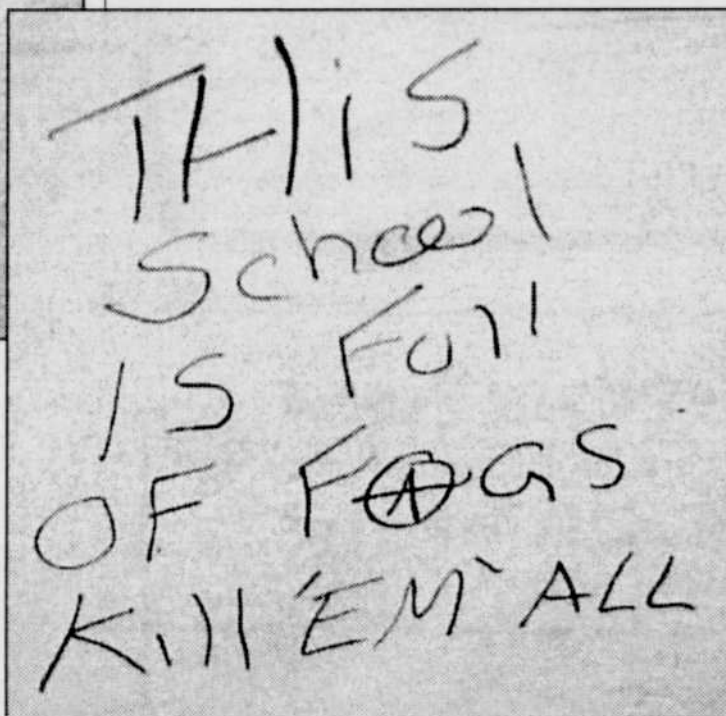 THiS
School
IS Full
OF FAGS
Kill 'EM' ALL